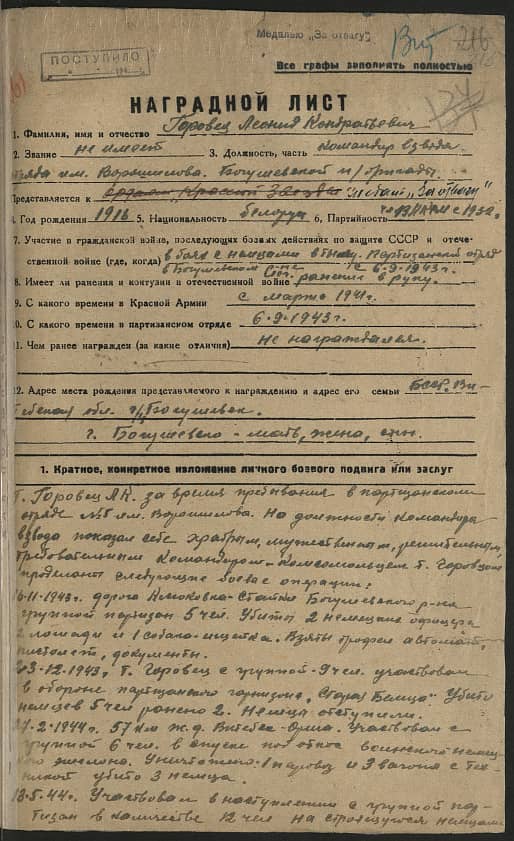 Медалью „За отвагу"
Вит 216
Все графы заполнять полностью
ПОСТУПИЛО
НАГРАДНОЙ ЛИСТ
1. Фамилия, имя и отчество Горовец Леонид Кондратьевич
2. Звание не имеет 3. Должность, часть командир взвода
отряда им. Ворошилова. Богушевской п/бригады.
Представляется к ордену „Красной Звезды" Медаль „За отвагу"
4. Год рождения 1916 5. Национальность белорус 6. Партийность чл. ВЛКСМ с 1932г.
7. Участие в гражданской войне, последующих боевых действиях по защите СССР и отече-
ственной войне (где, когда) в боях с немцами в тылу. Партизанский отряд
в Богушевском р-не с 6.9.1943г.
8. Имеет ли ранения и контузии в отечественной войне ранение в руку.
9. С какого времени в Красной Армии с марта 1941г.
10. С какого времени в партизанском отряде 6.9.1943г.
11. Чем ранее награжден (за какие отличия) не награждался.
12. Адрес места рождения представляемого к награждению и адрес его семьи БССР. Ви-
тебская обл. г/п Богушевск.
г. Богушевск - мать, жена, сын.
1. Краткое, конкретное изложение личного боевого подвига или заслуг
Т. Горовец Л.К. за время пребывания в партизанском
отряде №5 им. Ворошилова. На должности командира
взвода показал себя храбрым, мужественным, решительным,
требовательным командиром-комсомольцем т. Горовцом
проделаны следующие боевые операции:
16-11-1943г. дорога Стайки Богушевского р-на
группой партизан 5 чел. Убиты 2 немецких офицера
2 лошади и 1 собака-ищейка. Взяты трофеи автомат,
пистолет, документы.
23-12-1943г. т. Горовец с группой - 9 чел. участвовал
в обороне партизанского гарнизона „Старая Белица" Убито
немцев 5 чел ранено 2. Немцы отступили.
27-2-1944г. 57 км ж.д. Витебск-Орша. Участвовал с
группой 6 чел. в спуске под откос воинского немец-
кого эшелона. Уничтожено: 1 паровоз и 3 вагона с тех-
никой убито 3 немца.
18.5.44г. Участвовал в наступлении с группой пар-
тизан в количестве 12 чел на строящуюся немцами